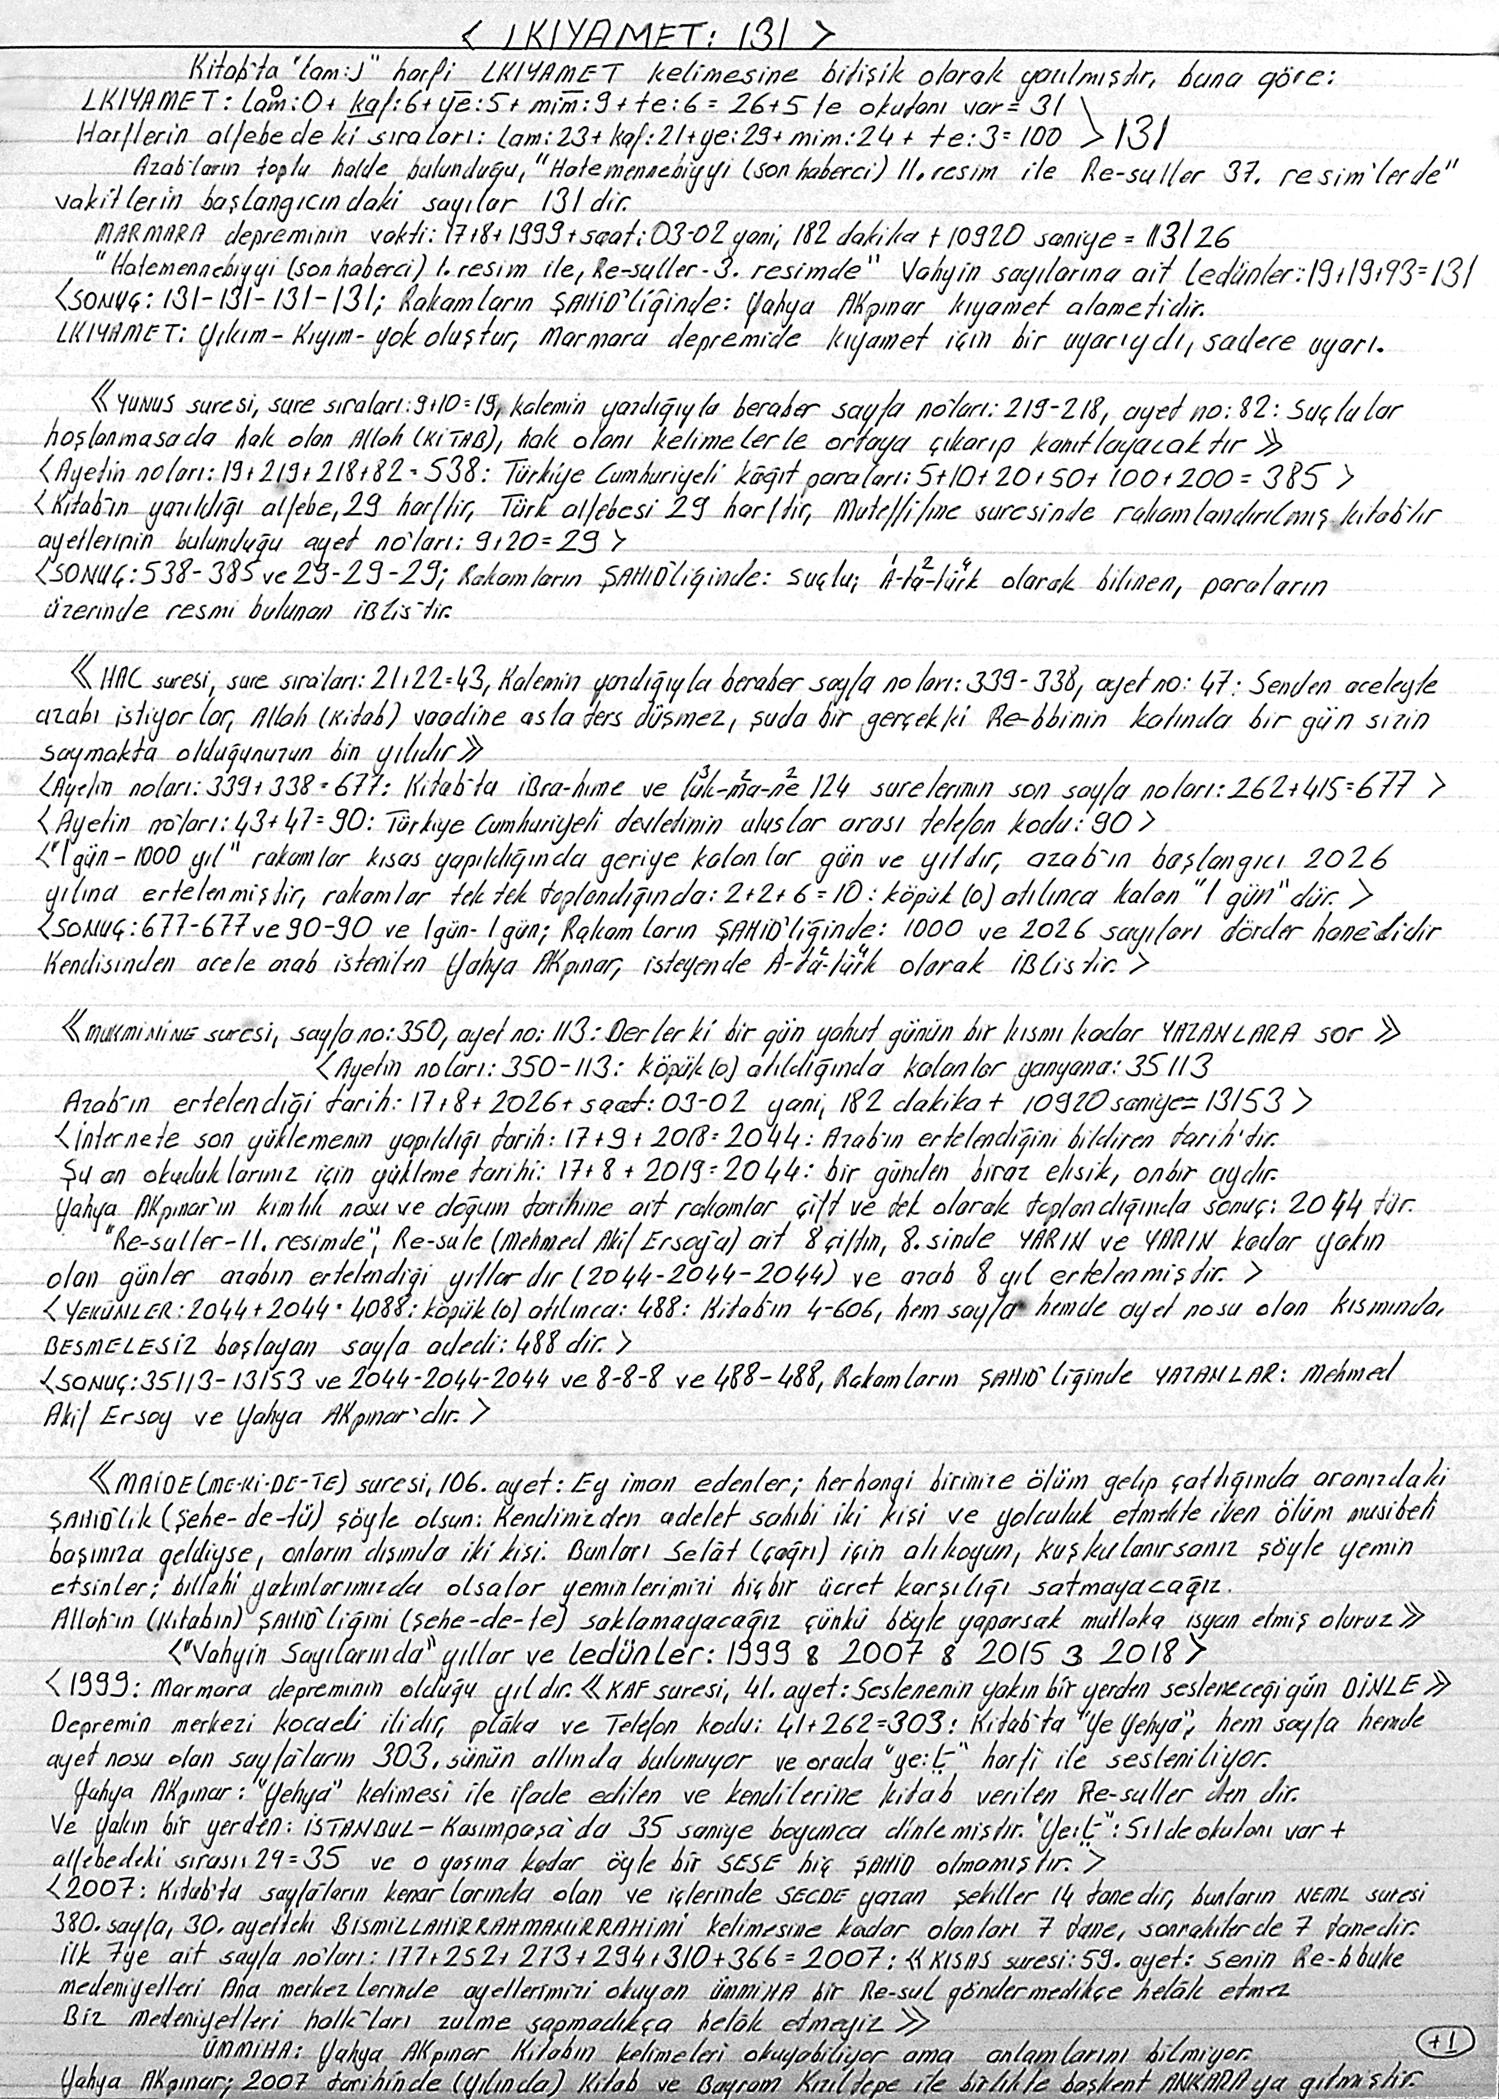 < LKIYAMET: 131 >
Kitab'ta "lam:J" harfi LKIYAMET kelimesine bitişik olarak yazılmıştır, buna göre:
LKIYAMET: lam:0+ kaf:6+ye:5+ mim:9+te:6= 26+5 te okutanı var= 31
Harflerin alfebedeki sıraları: lam:23+kaf:21+ye:29+mim:24+ te:3=100 > 131
Azab'ların toplu halde bulunduğu, "Hatemennebiyyi (son haberci) 11. resim ile Re-suller 37. resim'lerde"
vakitlerin başlangıcındaki sayılar 131 dir.
MARMARA depreminin vakti: 17+8+1999+saat:03-02 yani, 182 dakika + 10920 saniye = 113126
"Hatemennebiyyi (son haberci) 1. resim ile, Re-suller-3. resimde" Vahyin sayılarına ait Ledünler:19+19+93=131
<SONUÇ: 131-131-131-131; Rakamların ŞAHİD'liğinde: Yahya AKpınar kıyamet alametidir.
LKIYAMET: Yıkım-Kıyım-yok oluştur, Marmara depremide kıyamet için bir uyarıydı, sadece uyarı.
《YUNUS suresi, sure sıraları:9+10=19, kalemin yazdığıyla beraber sayfa no'ları: 219-218, ayet no:82: Suçlular
hoşlanmasada hak olan Allah (KİTAB), hak olanı kelimelerle ortaya çıkarıp kanıtlayacaktır》
<Ayetin no'ları: 19+219+218+82=538: Türkiye Cumhuriyeti kâğıt paraları: 5+10+20+50+100+200=385 >
<Kitab'ın yazıldığı alfebe, 29 harftir, Türk alfebesi 29 harftir, Muteffifine suresinde rakamlandırılmış kitabtır
ayetlerinin bulunduğu ayet no'ları: 9+20=29 >
<SONUÇ:538-385 ve 29-29-29; Rakamların ŞAHİD'liğinde: suçlu; A¹-ta²-türk⁴ olarak bilinen, paraların
üzerinde resmi bulunan İBLİS'tir.
《HAC suresi, sure sıraları: 21+22=43, Kalemin yazdığıyla beraber sayfa no'ları: 339-338, ayet no: 47: Senden aceleyle
azabı istiyorlar, Allah (Kitab) vaadine asla ters düşmez, şuda bir gerçekki Re-bbinin katında bir gün sizin
saymakta olduğunuzun bin yılıdır》
<Ayetin noları: 339+338=677: Kitab'ta İBra-hime ve lûk³-ma²-ne² 124 surelerinin son sayfa noları: 262+415=677 >
<Ayetin no'ları: 43+47=90: Türkiye Cumhuriyeti devletinin uluslar arası telefon kodu: 90 >
<"1 gün-1000 yıl" rakamlar kısas yapıldığında geriye kalanlar gün ve yıldır, azab'ın başlangıcı 2026
yılına ertelenmiştir, rakamlar tek tek toplandığında: 2+2+6=10: köpük (0) atılınca kalan "1 gün" dür. >
<SONUÇ:677-677 ve 90-90 ve 1gün-1gün; Rakamların ŞAHİD'liğinde: 1000 ve 2026 sayıları dörder hanelidir
Kendisinden acele azab istenilen Yahya AKpınar, isteyende A-ta²-türk⁴ olarak İBLİS'tir. >
《MUKMİNİNE suresi, sayfa no:350, ayet no: 113: Derler ki bir gün yahut günün bir kısmı kadar YAZANLARA sor》
<Ayetin noları: 350-113: köpük (0) atıldığında kalanlar yanyana: 35113
Azab'ın ertelendiği tarih: 17+8+2026+saat:03-02 yani, 182 dakika+ 10920 saniye= 13153 >
<İnternete son yüklemenin yapıldığı tarih: 17+9+2018=2044: Azab'ın ertelendiğini bildiren tarih'tir.
Şu an okuduklarınız için yükleme tarihi: 17+8+2019=2044: bir günden biraz eksik, onbir aydır.
Yahya AKpınar'ın kimlik nosu ve doğum tarihine ait rakamlar çift ve tek olarak toplandığında sonuç: 2044 tür.
"Re-suller-11. resimde", Re-sule (Mehmed Akif Ersoy'a) ait 8 çiftin, 8.sinde YARIN ve YARIN kadar yakın
olan günler azabın ertelendiği yıllardır (2044-2044-2044) ve azab 8 yıl ertelenmiştir. >
<YEKÜNLER: 2044+2044=4088: köpük (0) atılınca: 488: Kitab'ın 4-606, hem sayfa hemde ayet nosu olan kısmında,
BESMELESİZ başlayan sayfa adedi: 488 dir. >
<SONUÇ:35113-13153 ve 2044-2044-2044 ve 8-8-8 ve 488-488, Rakamların ŞAHİD'liğinde YAZANLAR: Mehmed
Akif Ersoy ve Yahya AKpınar'dır. >
《MAİDE (ME-Kİ-DE-TE) suresi, 106. ayet: Ey iman edenler; herhangi birinize ölüm gelip çattığında aranızdaki
ŞAHİD'lik (şehe-de-tü) şöyle olsun: Kendinizden adelet sahibi iki kişi ve yolculuk etmekte iken ölüm musibeti
başınıza geldiyse, onların dışında iki kişi. Bunları Selât (çağrı) için alıkoyun, kuşkulanırsanız şöyle yemin
etsinler; billahi yakınlarımızda olsalar yeminlerimizi hiçbir ücret karşılığı satmayacağız.
Allah'ın (Kitabın) ŞAHİD'liğini (şehe-de-te) saklamayacağız çünkü böyle yaparsak mutlaka isyan etmiş oluruz》
<"Vahyin Sayılarında" yıllar ve ledünler: 1999 8 2007 8 2015 3 2018>
<1999: Marmara depreminin olduğu yıldır. 《KAF suresi, 41. ayet: Seslenenin yakın bir yerden sesleneceği gün DİNLE》
Depremin merkezi kocaeli ilidir, plâka ve Telefon kodu: 41+262=303: Kitab'ta "Ye Yehya", hem sayfa hemde
ayet nosu olan sayfa'ların 303. sünün altında bulunuyor ve orada "ye:" harfi ile sesleniliyor.
Yahya AKpınar: "Yehya" kelimesi ile ifade edilen ve kendilerine kitab verilen Re-suller den dir.
Ve yakın bir yerden: İSTANBUL-Kasımpaşa'da 35 saniye boyunca dinlemiştir. "Ye:": 5 il de okutanı var +
alfebedeki sırası 29=35 ve o yaşına kadar öyle bir SESE hiç ŞAHİD olmamıştır. >
<2007: Kitab'ta sayfa'ların kenarlarında olan ve içlerinde SECDE yazan şekiller 14 tanedir, bunların NEML suresi
380. sayfa, 30. ayetteki BİSMİLLAHİRRAHMANİRRAHİMİ kelimesine kadar olanları 7 tane, sonrakiler de 7 tanedir.
İlk 7ye ait sayfa no'ları: 177+252+273+294+310+366=2007: 《KISAS suresi: 59. ayet: Senin Re-bbuke
medeniyetleri Ana merkezlerinde ayetlerimizi okuyan ÜMMİHA bir Re-sul göndermedikçe helâk etmez
Biz medeniyetleri halk'ları zulme sapmadıkça helâk etmeyiz》
ÜMMİHA: Yahya AKpınar Kitabın kelimeleri okuyabiliyor ama anlamlarını bilmiyor.
+1
Yahya AKpınar; 2007 tarihinde (yılında) Kitab ve Bayram Kızıltepe ile birlikte başkent ANKARA ya gitmiştir.